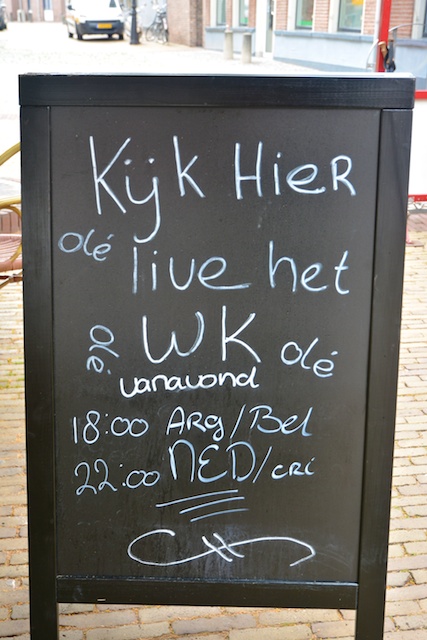 Kijk HIER
olé live het
olé WK olé
vanavond
18:00 ARg/Bel
22:00 NED/cri